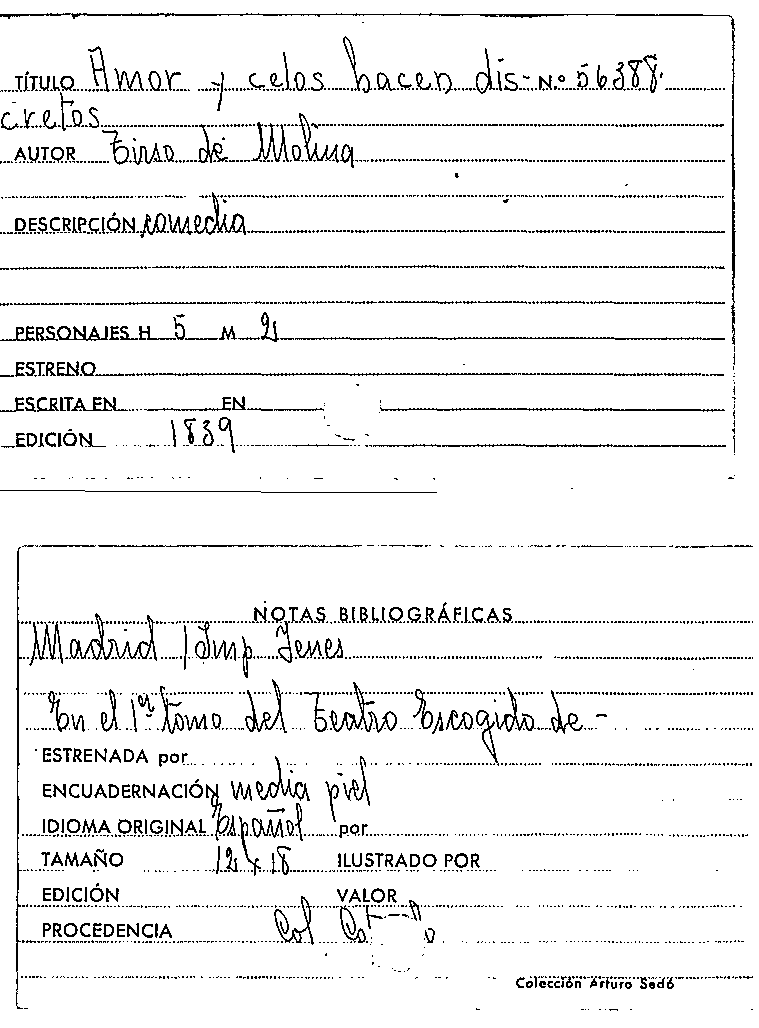 TÍTULO Amor y celos hacen dis- N.º 56388.
cretos
AUTOR Tirso de Molina
DESCRIPCIÓN comedia
PERSONAJES H 5 M 2
ESTRENO
ESCRITA EN EN
EDICIÓN 1839
NOTAS BIBLIOGRÁFICAS
Madrid / Imp Yenes
En el 1er tomo del Teatro Escogido de -
ESTRENADA por
ENCUADERNACIÓN media piel
IDIOMA ORIGINAL Español por
TAMAÑO 12 x 18 ILUSTRADO POR
EDICIÓN VALOR
PROCEDENCIA Col
Colección Arturo Sedó